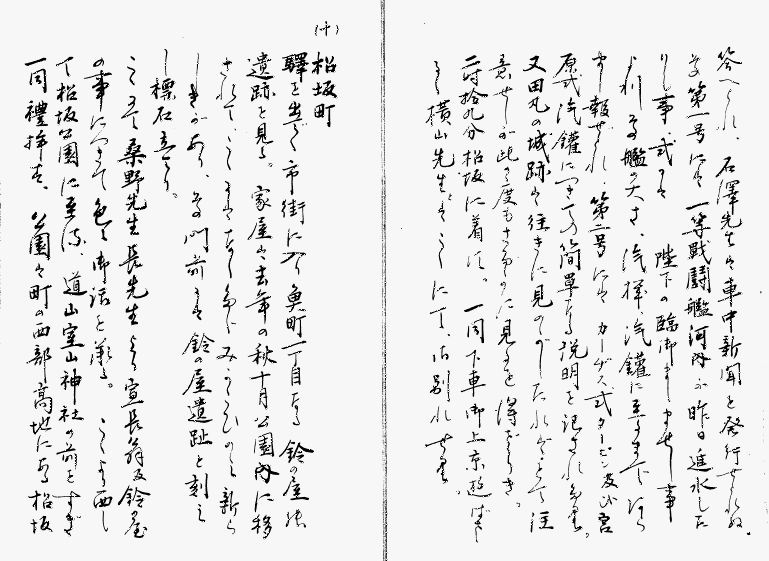 答へられ、石澤先生は車中新聞を発行せられぬ。
第一号には一等戦闘艦河内が昨日進水した
りし事、式には陛下の臨御ましませし事
より、艦の大さ、汽機、汽鑵に至るまで
報ぜられ、第二号にはカーチス式タービン及び宮
原式汽鑵につきての簡単なる説明を記されたり。
又田丸の城跡は往きに見のがしたればとて注
意せしが此の度もさだかに見るを得ざりき。
二時拾九分松坂に着す。一同下車御上京遊ばさ
る横山先生とここにて御別れせり。
(十)
松坂町
驛を出でて市街に入り魚町一丁目なる鈴の屋
遺跡を見る。家屋は去年の秋十月公園内に移
されて、ここには
あり、門前には鈴の屋遺趾と刻み
し標石立てり。
ここにて桑野先生長先生より宣長翁及鈴の屋
の事につきて色々御話を承る。ここより西し
て松坂公園に至る、道山室山神社の前をすぎ
一同禮拝す、公園は町の西部高地にある松坂